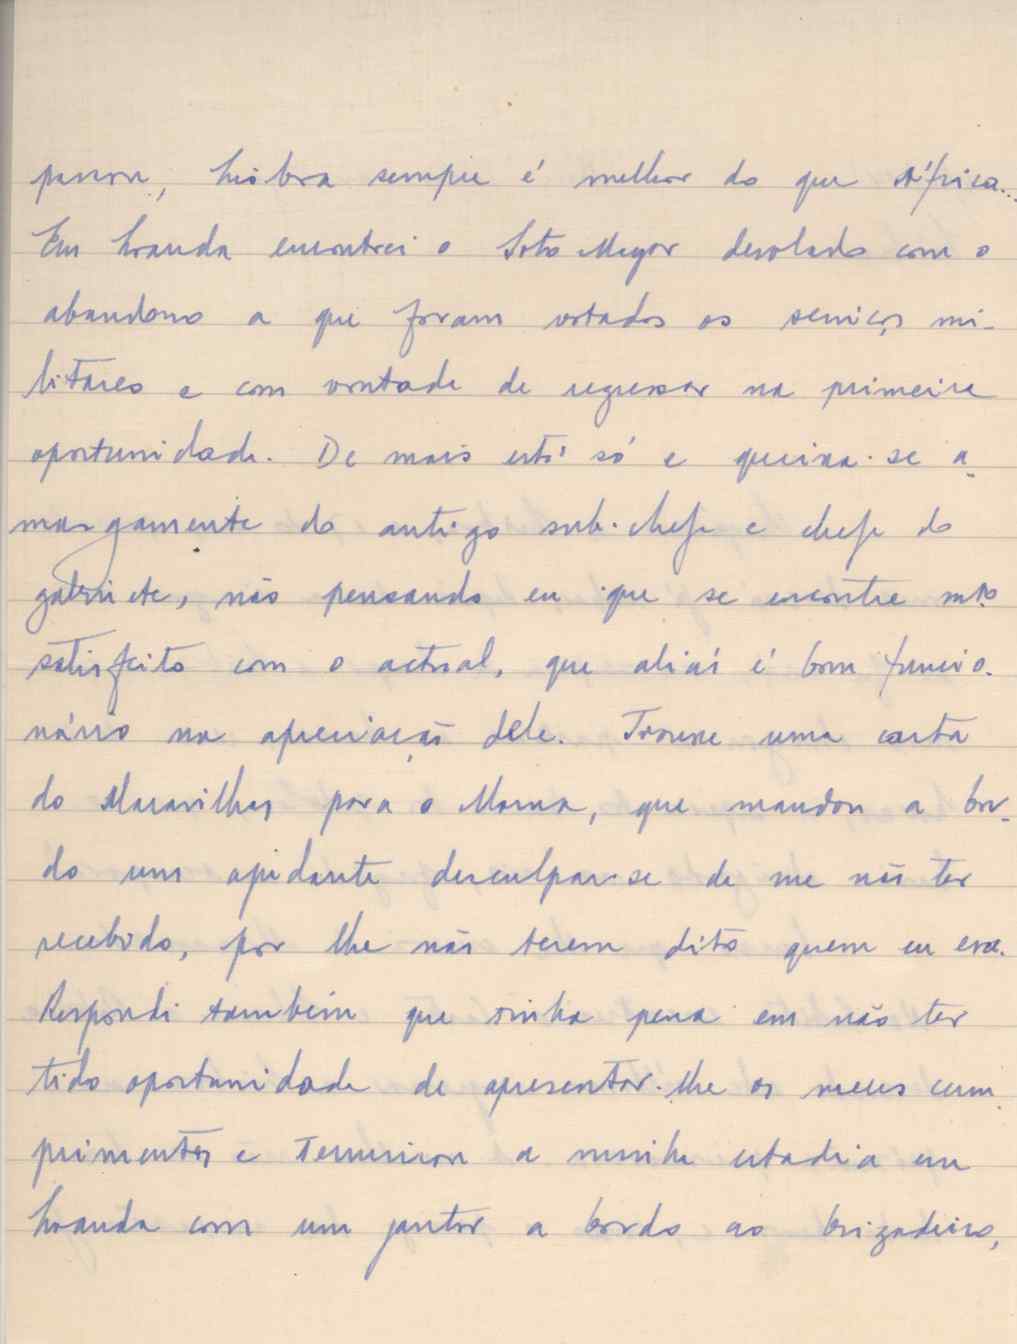 passou, Lisboa sempre é melhor do que África...
Em Luanda encontrei o Soto Mayor desolado com o
abandono a que foram votados os serviços mi-
litares e com vontade de regressar na primeira
oportunidade. De mais está só e queixa-se a-
margamente do antigo sub-chefe e chefe do
gabinete, não pensando eu que se encontre mto
satisfeito com o actual, que aliás é bom funcio-
nário na apreciação dele. Trouxe uma carta
do Maravilhas para o Morna, que mandou a bor-
do um ajudante desculpar-se de me não ter
recebido, por lhe não terem dito quem eu era.
Respondi também que tinha pena em não ter
tido oportunidade de apresentar-lhe os meus cum-
primentos e terminou a minha estadia em
Luanda com um jantar a bordo ao brigadeiro,